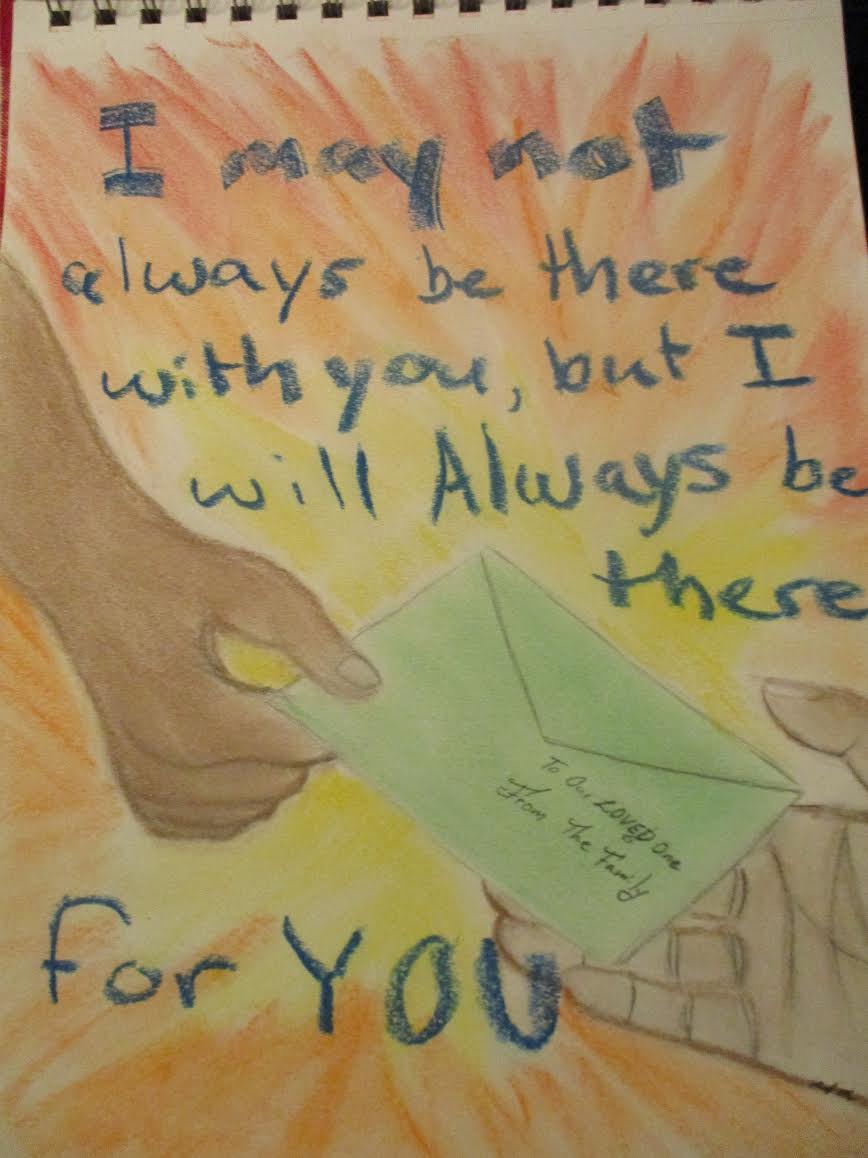 I may not
always be there
with you, but I
will Always be
there
To Our LOVED One
From The Family
for YOU